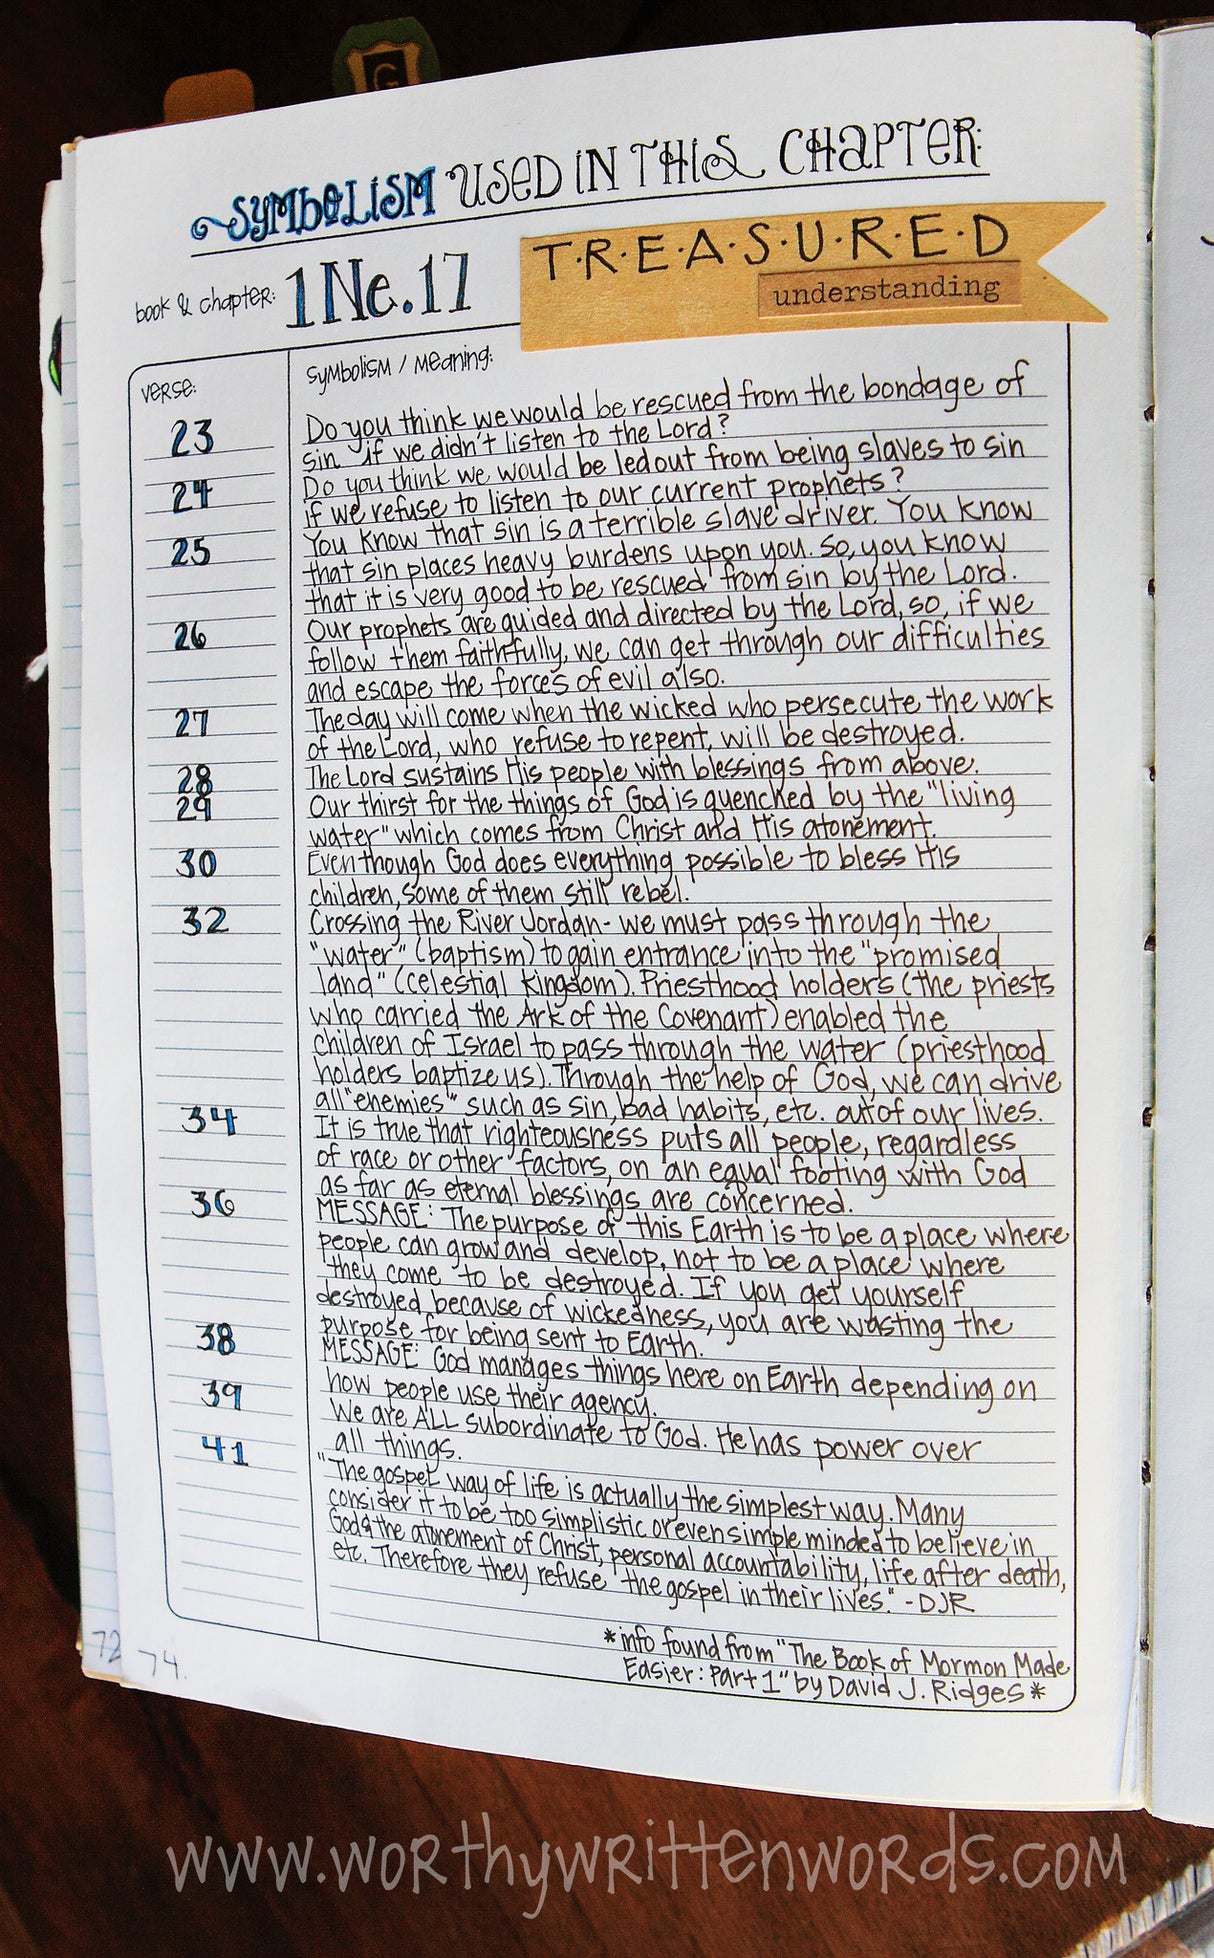 G
SYMBOLISM USED IN THIS CHAPTER:
book & chapter: 1 Ne. 17
T·R·E·A·S·U·R·E·D
understanding
verse:
symbolism / meaning:
23 Do you think we would be rescued from the bondage of
sin if we didn't listen to the Lord?
24 Do you think we would be led out from being slaves to sin
if we refuse to listen to our current prophets?
25 You know that sin is a terrible slave driver. You know
that sin places heavy burdens upon you. So, you know
that it is very good to be rescued from sin by the Lord.
26 Our prophets are guided and directed by the Lord, so, if we
follow them faithfully, we can get through our difficulties
and escape the forces of evil also.
27 The day will come when the wicked who persecute the work
of the Lord, who refuse to repent, will be destroyed.
28 The Lord sustains His people with blessings from above.
29 Our thirst for the things of God is quenched by the "living
water" which comes from Christ and His atonement.
30 Even though God does everything possible to bless His
children, some of them still rebel.
32 Crossing the River Jordan- we must pass through the
"water" (baptism) to gain entrance into the "promised
land" (celestial kingdom). Priesthood holders (the priests
who carried the Ark of the Covenant) enabled the
children of Israel to pass through the water (priesthood
holders baptize us). Through the help of God, we can drive
all "enemies" such as sin, bad habits, etc. out of our lives.
34 It is true that righteousness puts all people, regardless
of race or other factors, on an equal footing with God
as far as eternal blessings are concerned.
36 MESSAGE: The purpose of this Earth is to be a place where
people can grow and develop, not to be a place where
they come to be destroyed. If you get yourself
destroyed because of wickedness, you are wasting the
purpose for being sent to Earth.
38 MESSAGE: God manages things here on Earth depending on
how people use their agency.
39 We are ALL subordinate to God. He has power over
all things.
41 "The gospel way of life is actually the simplest way. Many
consider it to be too simplistic or even simple minded to believe in
God & the atonement of Christ, personal accountability, life after death,
etc. Therefore they refuse the gospel in their lives." -DJR
*info found from "The Book of Mormon Made
Easier: Part 1" by David J. Ridges*
72
74.
www.worthywrittenwords.com